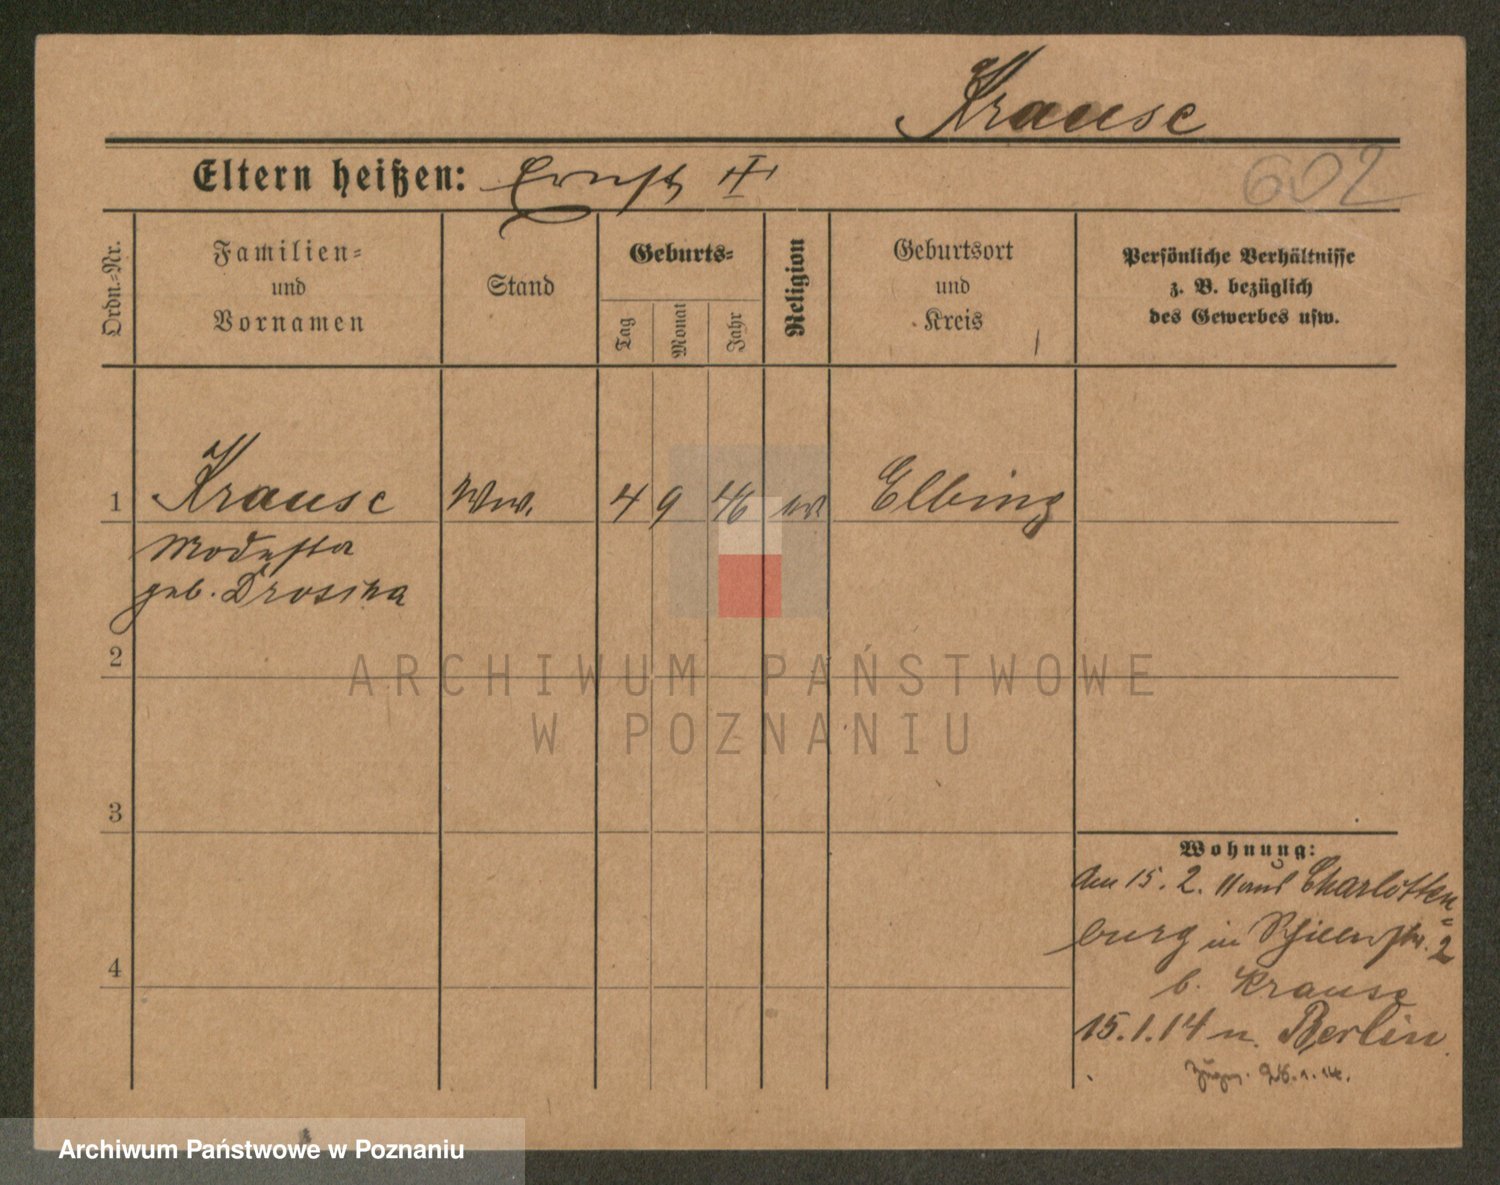 Krause
Eltern heißen: Ernst
602
Ordn.-Nr.
Familien-
und
Vornamen
Stand
Geburts-
Tag
Monat
Jahr
Religion
Geburtsort
und
Kreis
Persönliche Verhältnisse
z. B. bezüglich
des Gewerbes usw.
1 Krause Ww. 4 9 46 ev Elbing
Modesta
geb. Drosina
2
3
4
ARCHIWUM PAŃSTWOWE
W POZNANIU
Wohnung:
Am 15. 2. 11 aus Charlotten
=
burg in Schillerstr. 2
b. Krause
15.1.14 n. Berlin
Archiwum Państwowe w Poznaniu